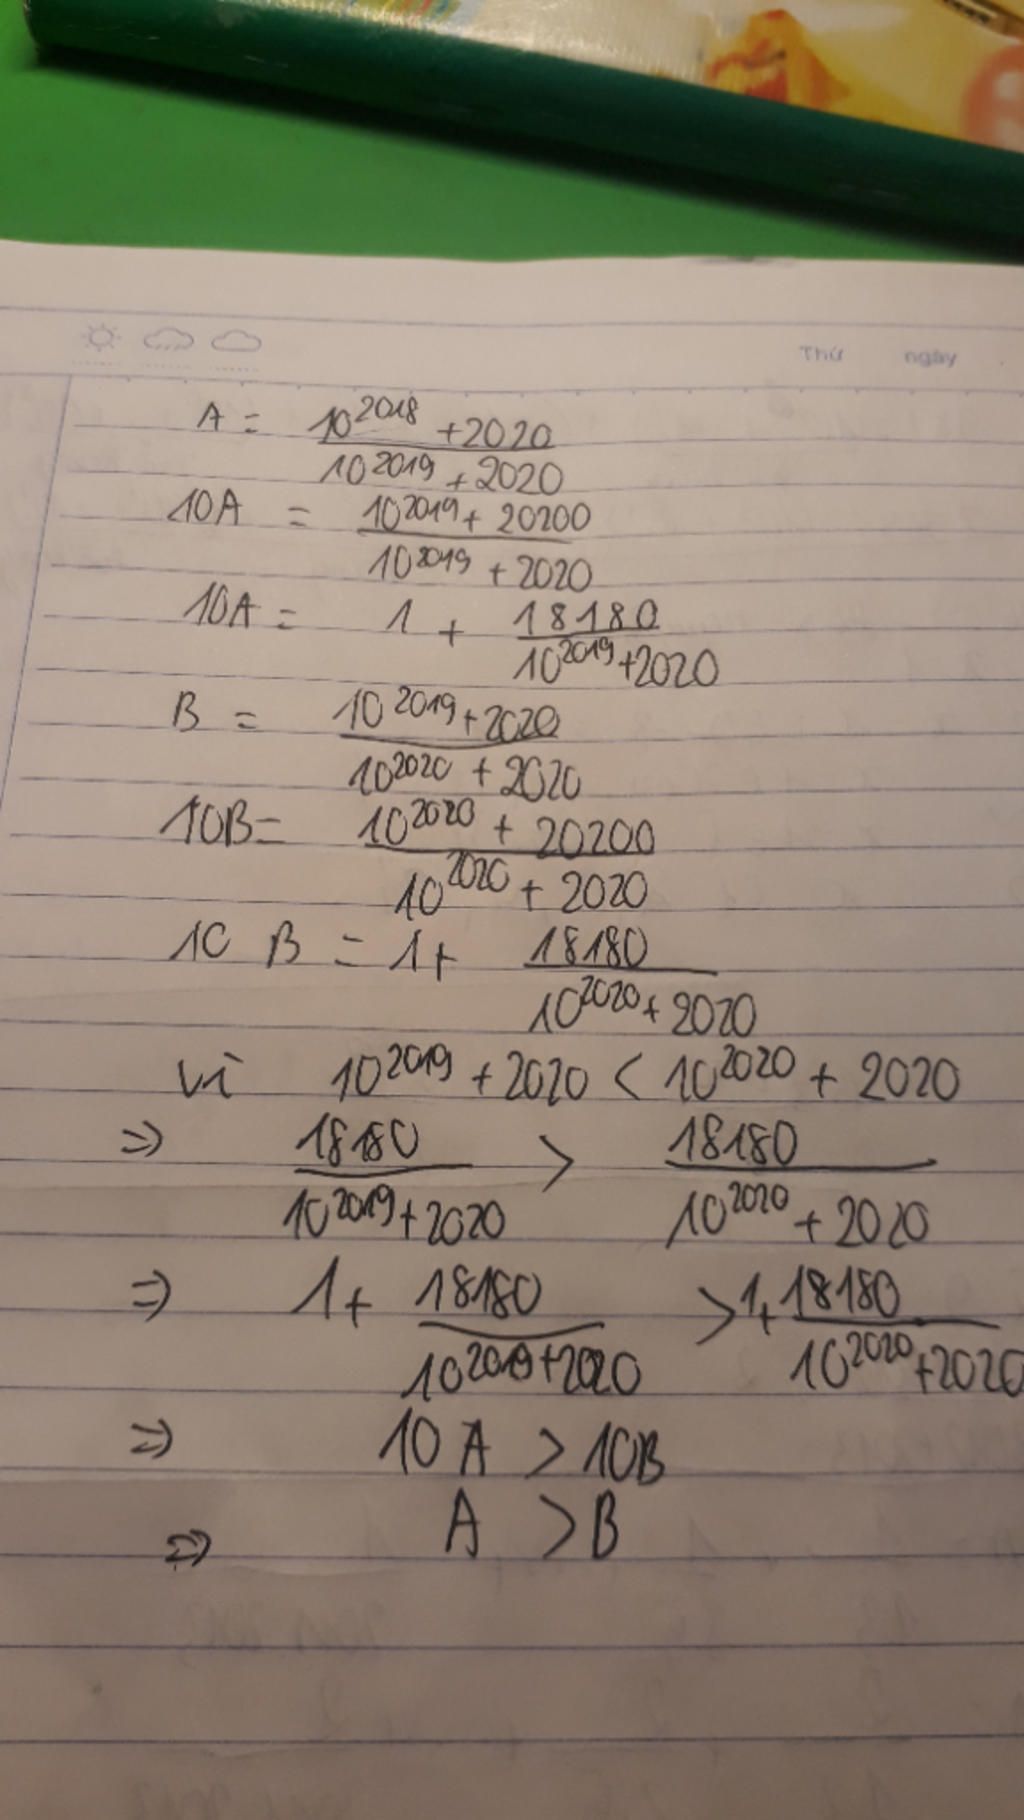 Thứ ngày
A = \frac{10^{2018} + 2020}{10^{2019} + 2020}
10A = \frac{10^{2019} + 20200}{10^{2019} + 2020}
10A = 1 + \frac{18180}{10^{2019} + 2020}
B = \frac{10^{2019} + 2020}{10^{2020} + 2020}
10B = \frac{10^{2020} + 20200}{10^{2020} + 2020}
10 B = 1 + \frac{18180}{10^{2020} + 2020}
Vì 10^{2019} + 2020 < 10^{2020} + 2020
=> \frac{18180}{10^{2019} + 2020} > \frac{18180}{10^{2020} + 2020}
=> 1 + \frac{18180}{10^{2019} + 2020} > 1 + \frac{18180}{10^{2020} + 2020}
=> 10 A > 10B
=> A > B